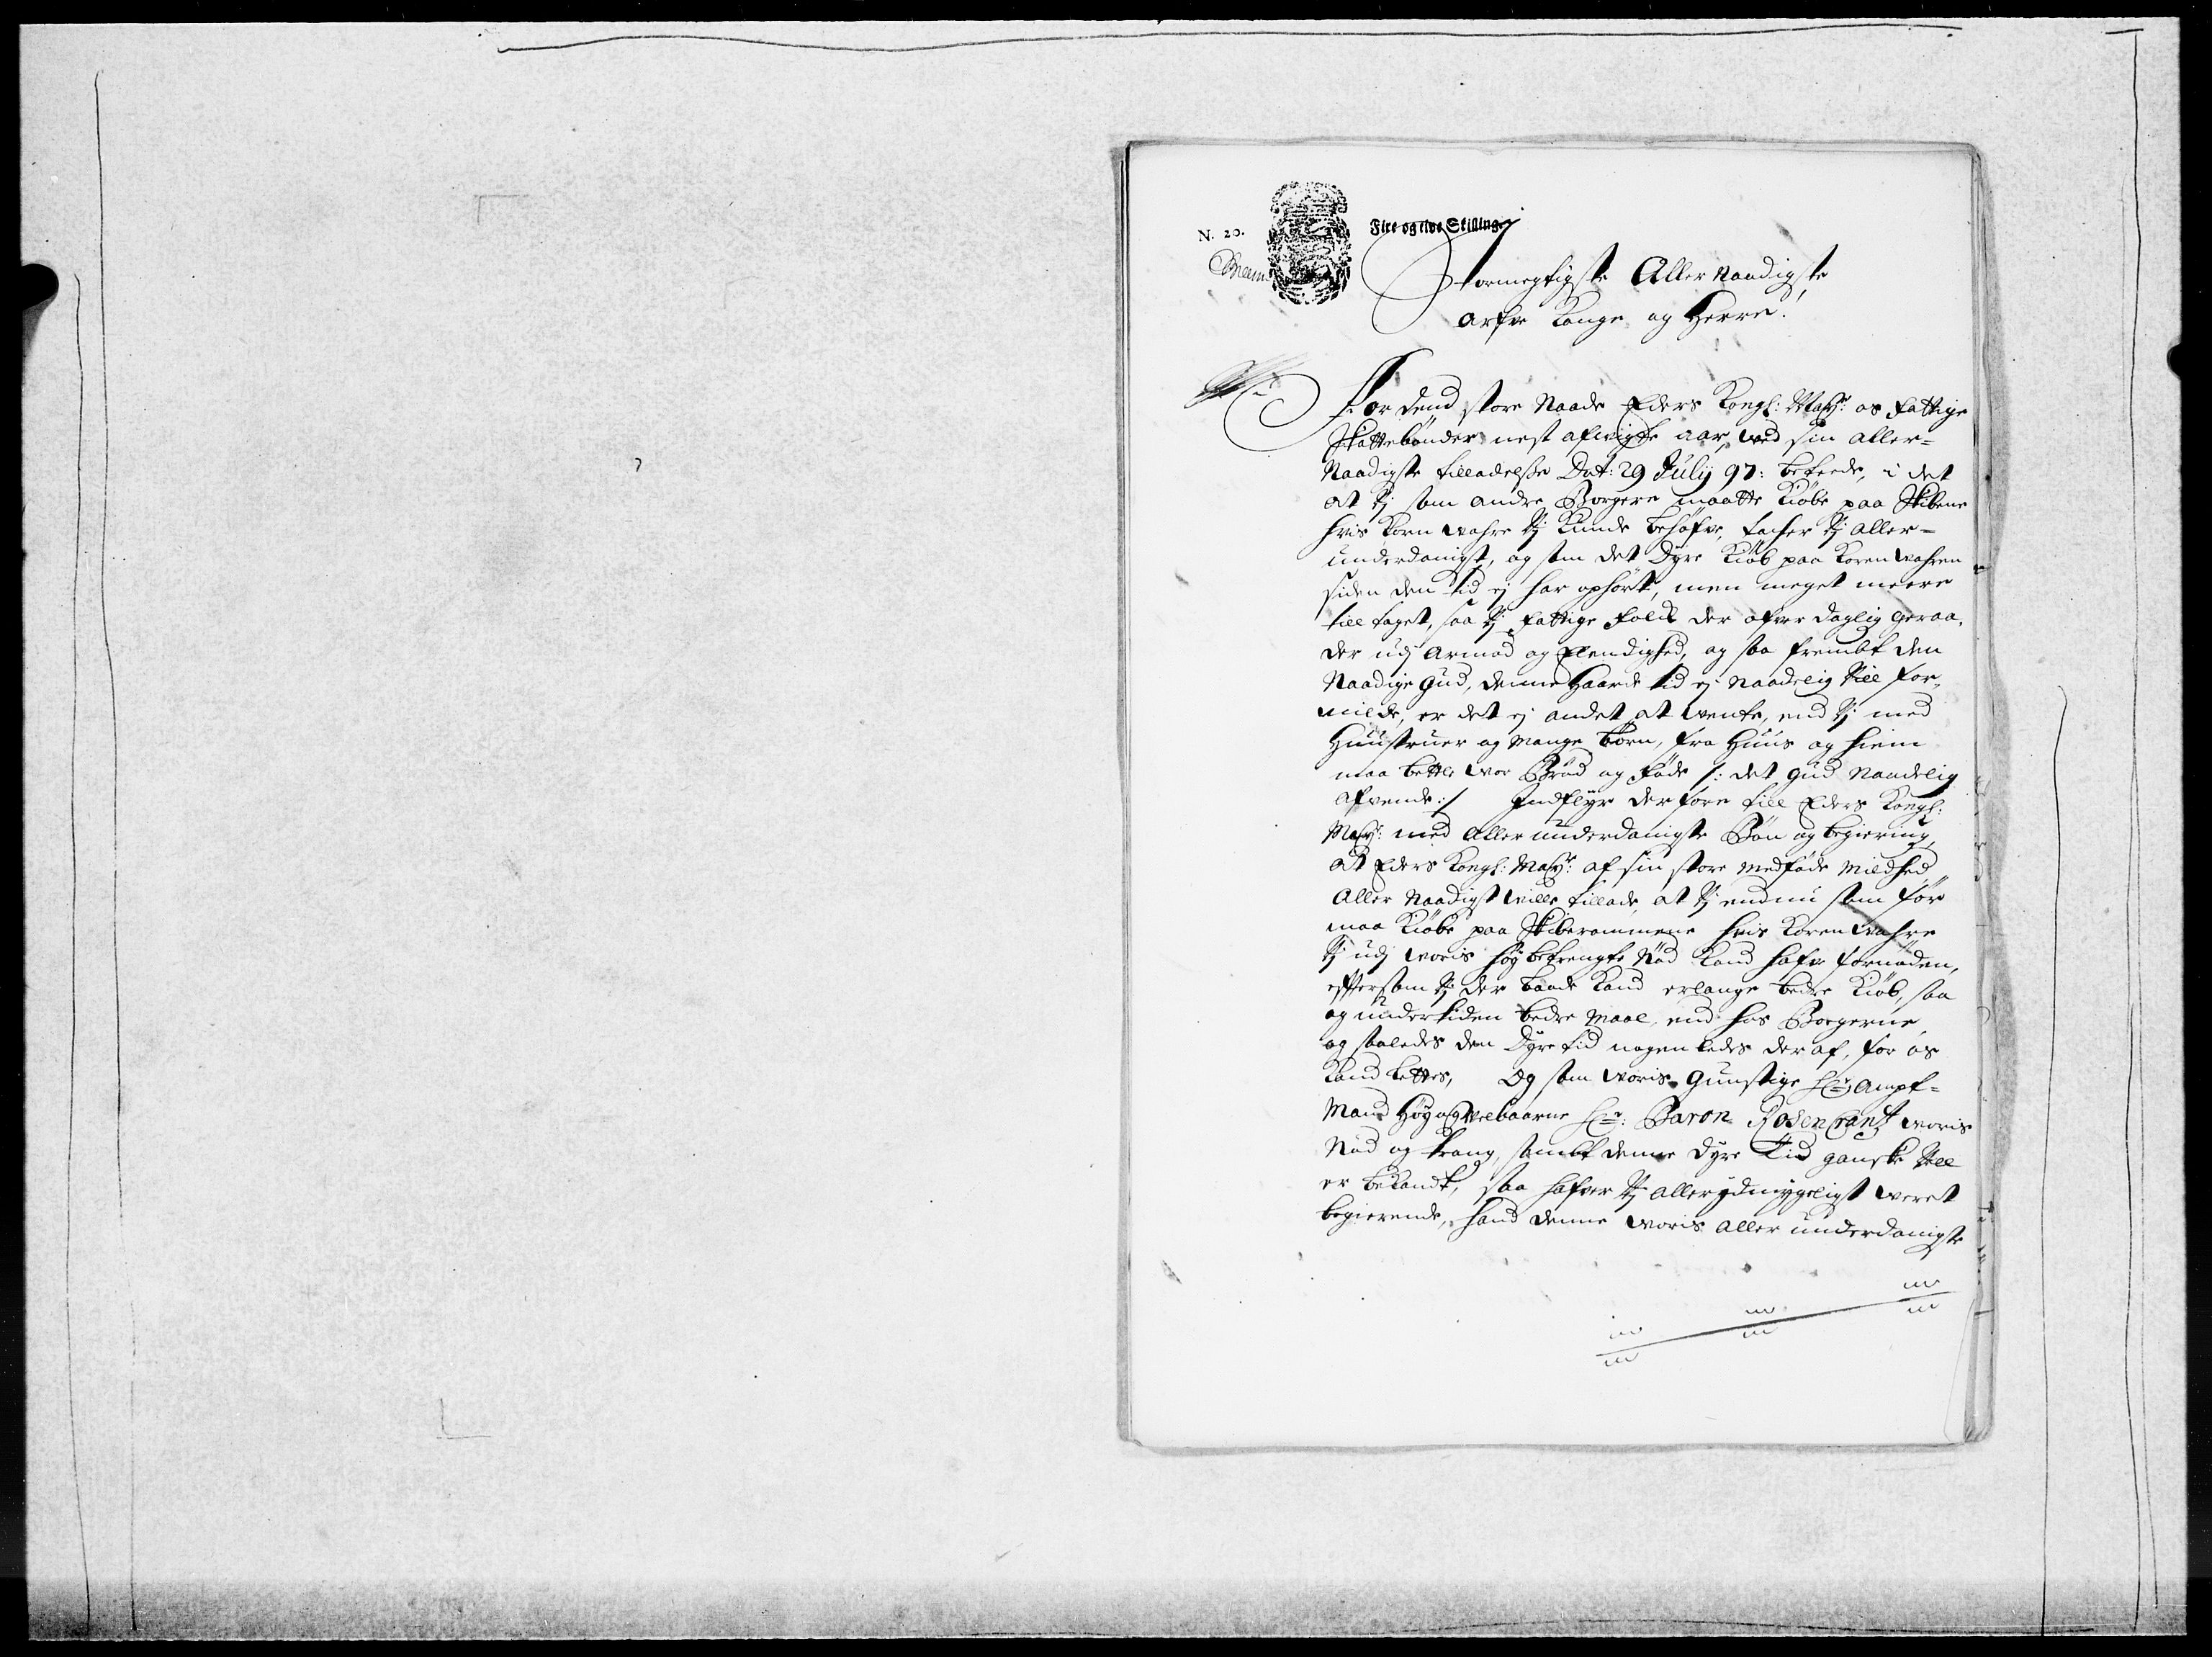 N. 20.
Fire og tive Skilling
Stormegtigste Aller Naadigste
Arfve Konge og Herre!
For dend store Naade Eders Kongl: Mayt: os fattige
Skattebønder nest afvigte aar, ved sin aller-
Naadigste tilladelsse Dat: 29 Julij 97: beteede, i det
at Vj som andre Borgere maatte Kiøbe paa Skibene
hvis Korn wahre Vj Kunde behøfve, tacher Vj aller-
underdanigst, og som det Dyre Kiøb paa Koren wahren
siden den tid ej har ophørt, men meget meere
till taget, saa Vj fattige folck der ofver daglig geraa-
der udj armod og Elendighed, og saa frembt den
Naadige Gud, denne Haarde tid ej naadelig Vill for-
milde, er det ej andet at vente, end Vj med
Huustruer og mange børn, fra Huus og hiem
maa bettle vor Brød og føde /: det Gud naadelig
afvende :/ Indflyr derfore till Eders Kongl:
Mayt: med aller underdanigste Bøn og begiering,
at Eders Kongl: Mayt: af sin store medføde mildhed
Aller Naadigst wille tillade, at Vj endnu som før
maa Kiøbe paa Skiberommene hvis Koren wahre
Vj udj woris høy betrengte Nød Kand hafve fornøden,
eftersom Vj der baade Kand erlange bedre Kiøb, saa
og undertiden bedre maal, end hos Borgerne,
og saaledes den Dyre tid nogenledes der af, for os
Kand lettes, Og som woris gunstige Hr: Ampt-
Mand Høy og Velbaarne Hr: Baron Rosencrantz woris
Nød og trang, sambt denne dyre Tid ganske Vel
er bekandt, saa hafver Vj allerydmygeligst veret
begierende, hand denne woris aller underdanigste